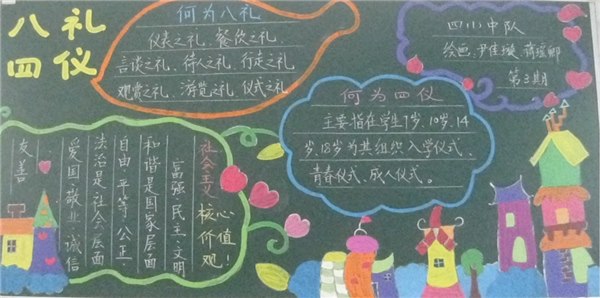 八礼
四仪
何为八礼
仪表之礼、餐饮之礼、
言谈之礼、待人之礼、行走之礼、
观赏之礼、游览之礼、仪式之礼
四(1)中队
绘画:尹佳
第3期
何为四仪
主要指在学生7岁、10岁、14
岁、18岁为其组织入学仪式、
青春仪式、成人仪式。
社会主义
核心
价值
观!
富强·民主·文明
和谐是国家层面
自由·平等·公正·
法治是社会层面
爱国·敬业·诚信
友善